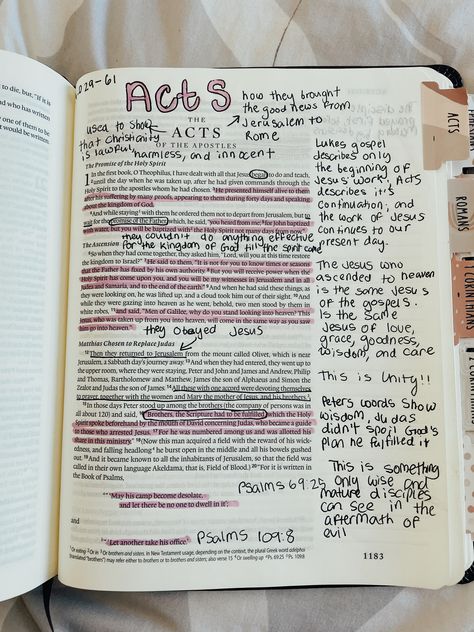 to die, but, "If it is
and who has written
one of them to be
would be written.
AD 29-61
Acts
how they brought
the good news from
Jerusalem to
Rome
used to show
that Christianity
is lawful, harmless, and innocent
THE
ACTS
OF THE APOSTLES
The Promise of the Holy Spirit
1 In the first book, O Theophilus, I have dealt with all that Jesus began to do and teach,
until the day when he was taken up, after he had given commands through the Holy
Spirit to the apostles whom he had chosen. He presented himself alive to them
after his suffering by many proofs, appearing to them during forty days and speaking
about the kingdom of God.
And while staying with them he ordered them not to depart from Jerusalem, but to
wait for the promise of the Father, which, he said, "you heard from me; for John baptized
with water, but you will be baptized with the Holy Spirit not many days from now."
they couldn't do anything effective
for the kingdom of God till the spirit came
The Ascension
So when they had come together, they asked him, "Lord, will you at this time restore
the kingdom to Israel?" He said to them, "It is not for you to know times or seasons
that the Father has fixed by his own authority. But you will receive power when the
Holy Spirit has come upon you, and you will be my witnesses in Jerusalem and in all
Judea and Samaria, and to the end of the earth." And when he had said these things, as
they were looking on, he was lifted up, and a cloud took him out of their sight. And
while they were gazing into heaven as he went, behold, two men stood by them in
white robes, and said, "Men of Galilee, why do you stand looking into heaven? This
Jesus, who was taken up from you into heaven, will come in the same way as you saw
him go into heaven."
they obeyed Jesus
Matthias Chosen to Replace Judas
Then they returned to Jerusalem from the mount called Olivet, which is near
Jerusalem, a Sabbath day's journey away. And when they had entered, they went up to
the upper room, where they were staying, Peter and John and James and Andrew, Philip
and Thomas, Bartholomew and Matthew, James the son of Alphaeus and Simon the
Zealot and Judas the son of James. All these with one accord were devoting themselves
to prayer, together with the women and Mary the mother of Jesus, and his brothers.
In those days Peter stood up among the brothers (the company of persons was in
all about 120) and said, "Brothers, the Scripture had to be fulfilled, which the Holy
Spirit spoke beforehand by the mouth of David concerning Judas, who became a guide
to those who arrested Jesus. For he was numbered among us and was allotted his
share in this ministry." (Now this man acquired a field with the reward of his wick-
edness, and falling headlong he burst open in the middle and all his bowels gushed
out. And it became known to all the inhabitants of Jerusalem, so that the field was
called in their own language Akeldama, that is, Field of Blood.) "For it is written in
the Book of Psalms,
Psalms 69:25
"'May his camp become desolate,
and let there be no one to dwell in it';
and
"'Let another take his office.'
Psalms 109:8
1183
Lukes gospel
describes only
the beginning of
Jesus' work, Acts
describes it's
continuation; and
the work of Jesus
continues to our
present day.
The Jesus who
ascended to heaven
is the same Jesus
of the gospels.
Is the same
Jesus of love,
grace, goodness,
wisdom, and care
This is Unity!!
Peters words show
wisdom, Judas
didn't spoil God's
plan he fulfilled it
This is something
only wise and
mature disciples
can see in the
aftermath of
evil
ROMANS